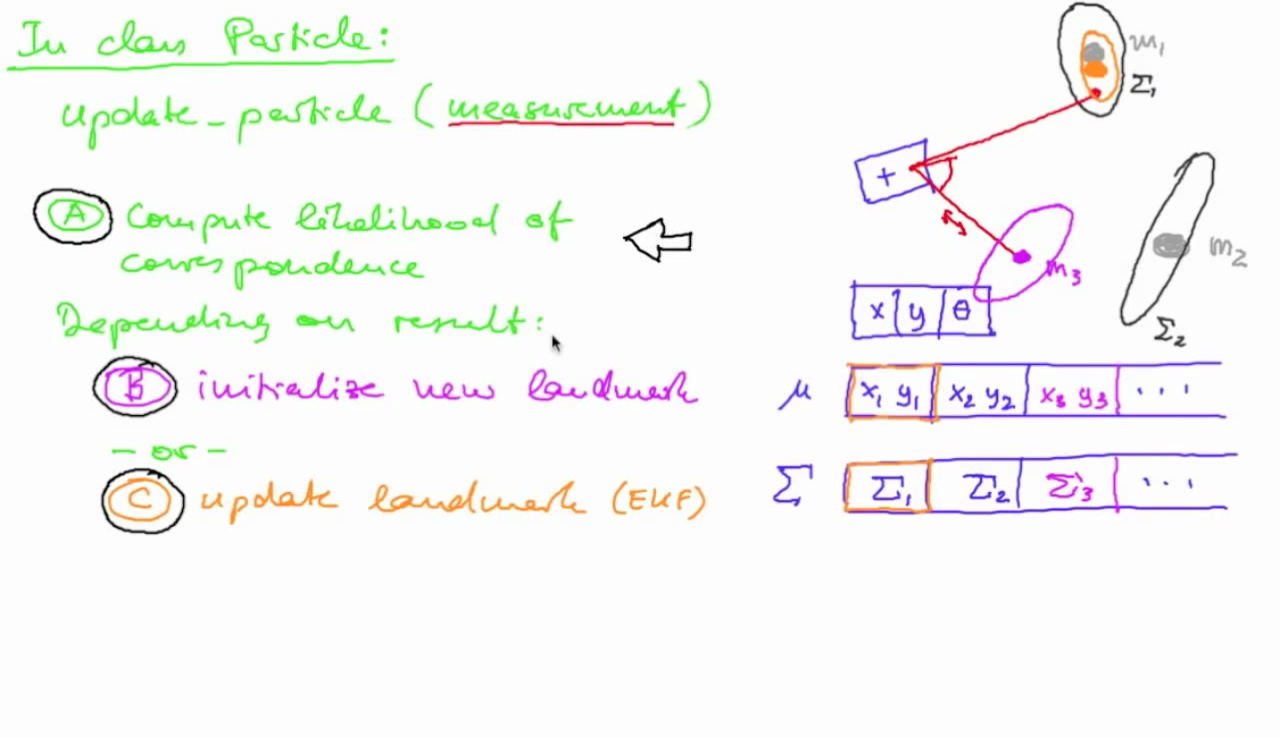 In class Particle:
update_particle (measurement)
A compute likelihood of
correspondence
Depending on result:
B initialize new landmark
- or -
C update landmark (EKF)
m₁
Σ₁
+
m₂
Σ₂
m₃
x y θ
μ x₁ y₁ x₂ y₂ x₃ y₃ ...
Σ Σ₁ Σ₂ Σ₃ ...